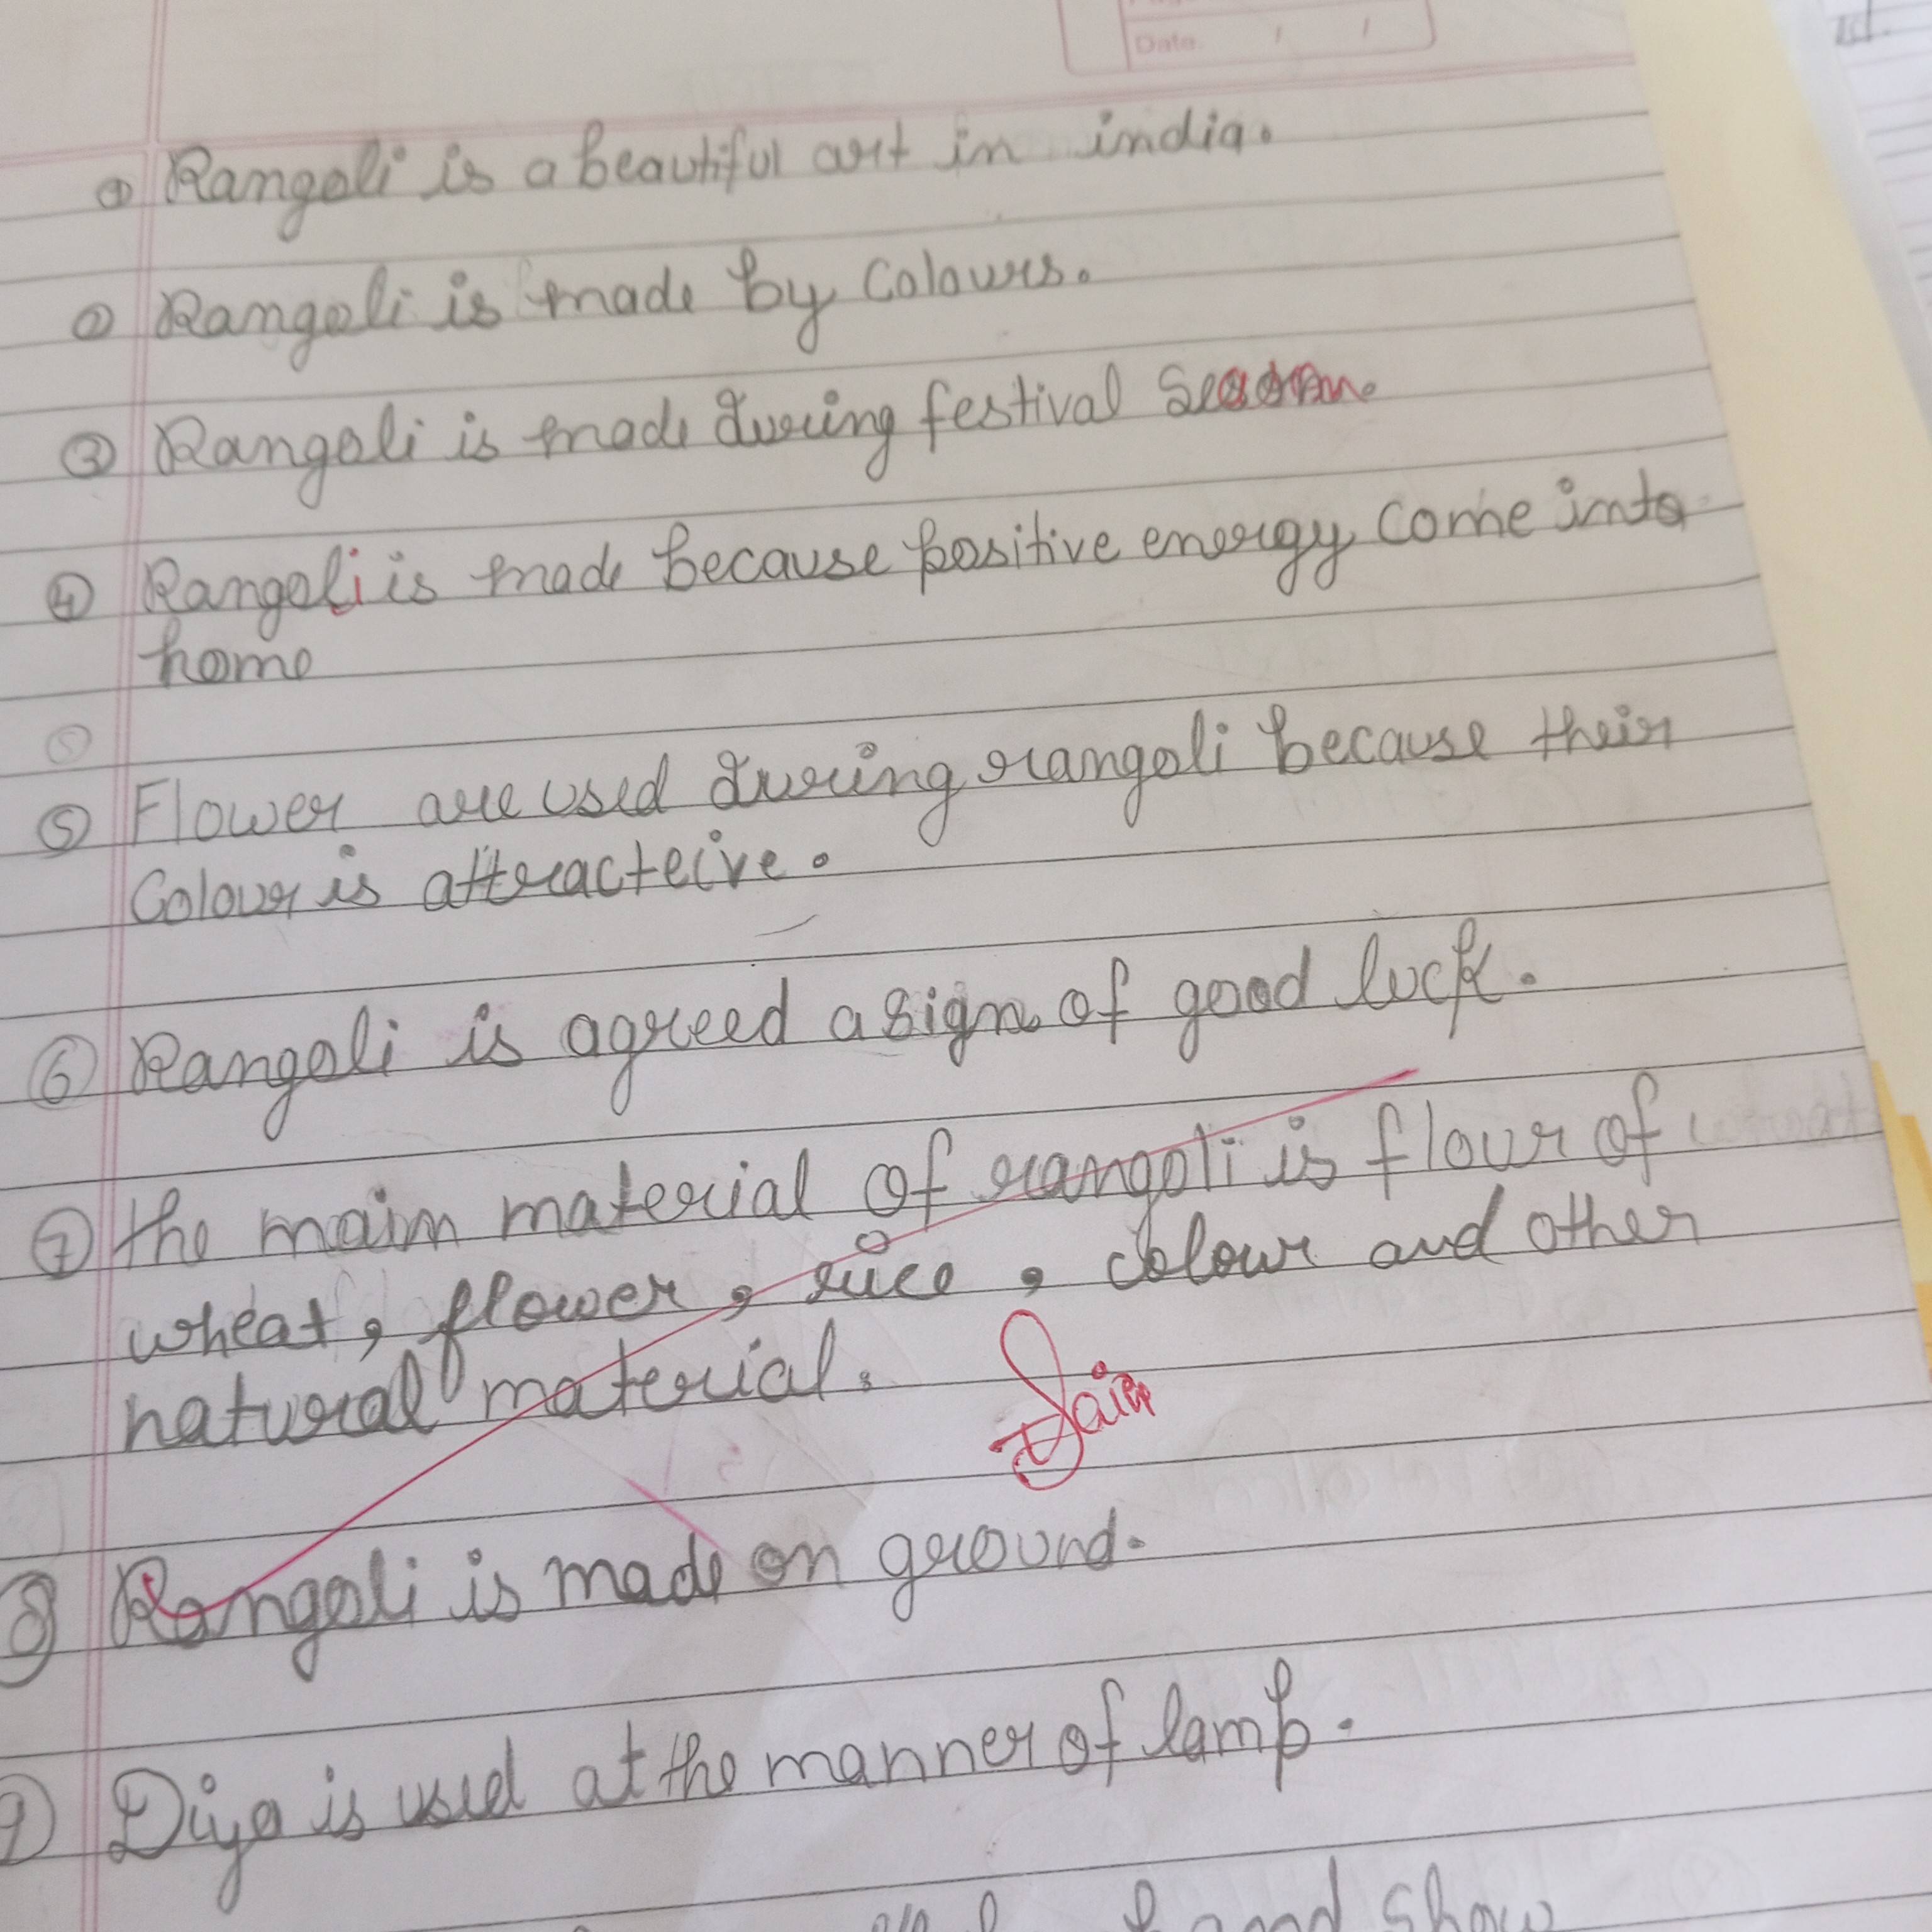 Date. / /
① Rangoli is a beautiful art in india.
② Rangoli is made by Colours.
③ Rangoli is made during festival Season.
④ Rangoli is made because positive energy come into
home
⑤
⑤ Flower are used during rangoli because their
Colour is attracteive.
⑥ Rangoli is agreed a sign of good luck.
⑦ the main material of rangoli is flour of
wheat, flower, rice, colour and other
natural material.
⑧ Rangoli is made on ground.
⑨ Diya is used at the manner of lamp.
and show